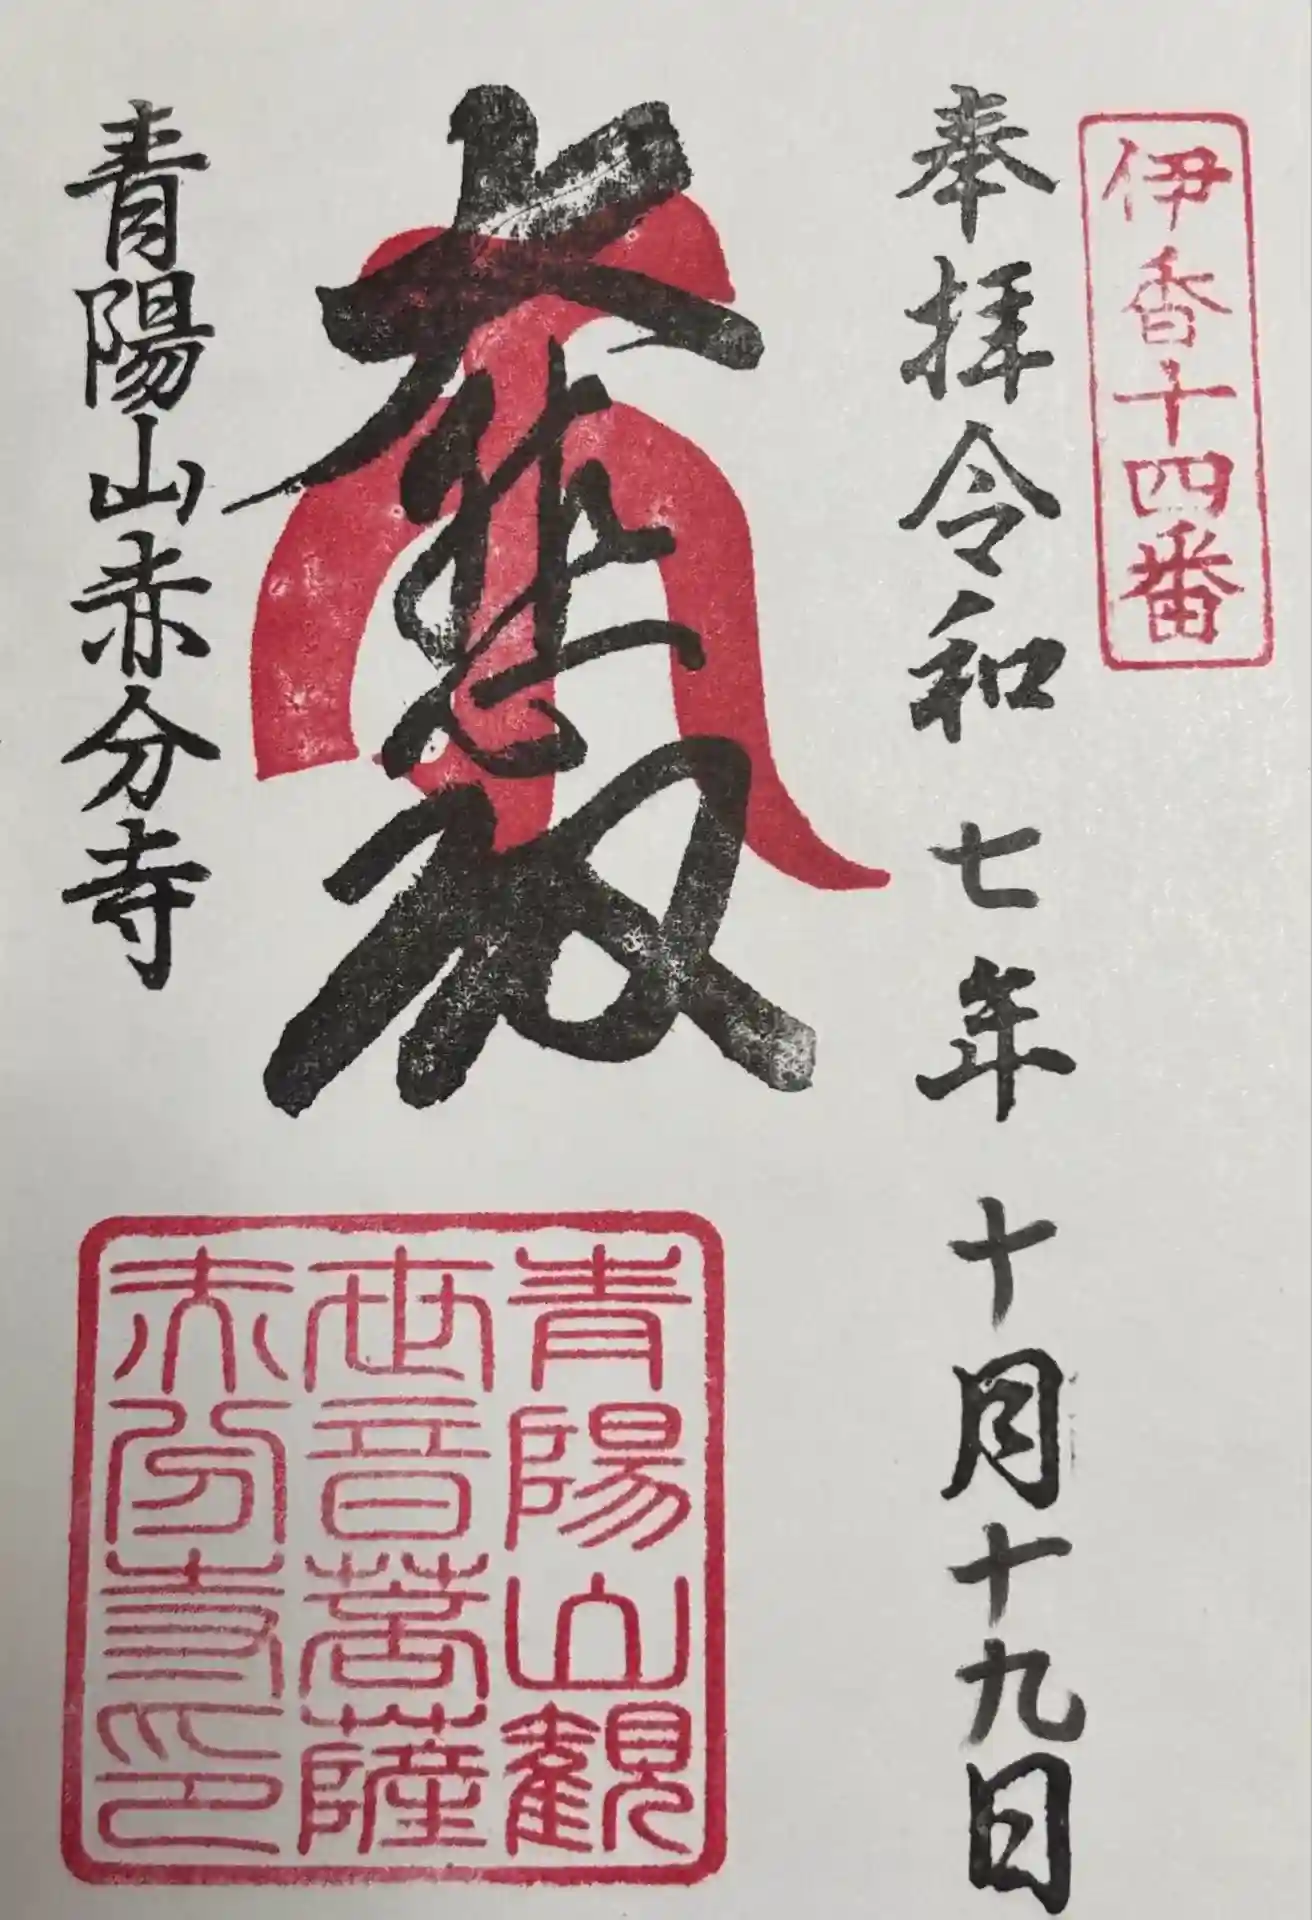 伊香十四番
奉拝 令和七年十月十九日
大悲殿
青陽山赤分寺
青陽山観
世音菩薩
赤分寺印